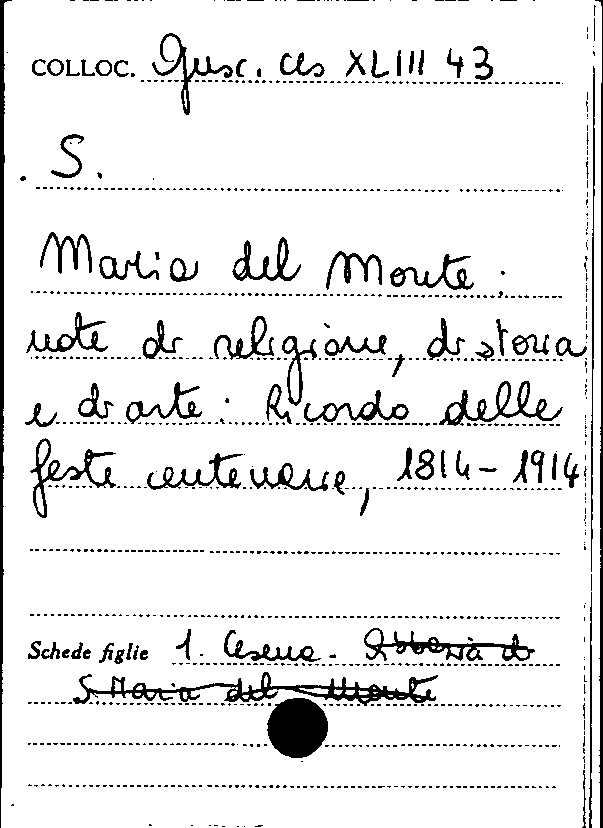 COLLOC. Gusc. Ces XLIII 43
. S.
Maria del Monte :
note di religione, di storia
e di arte : Ricordo delle
feste centenarie, 1814-1914
Schede figlie 1. Cesena - Abbazia di
S. Maria del Monte